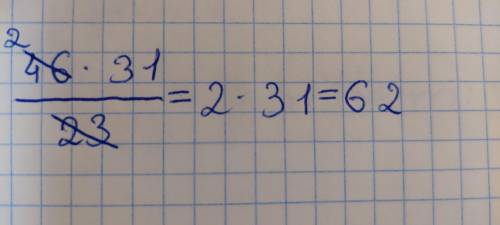 2
46 · 31
23
= 2 · 31 = 62